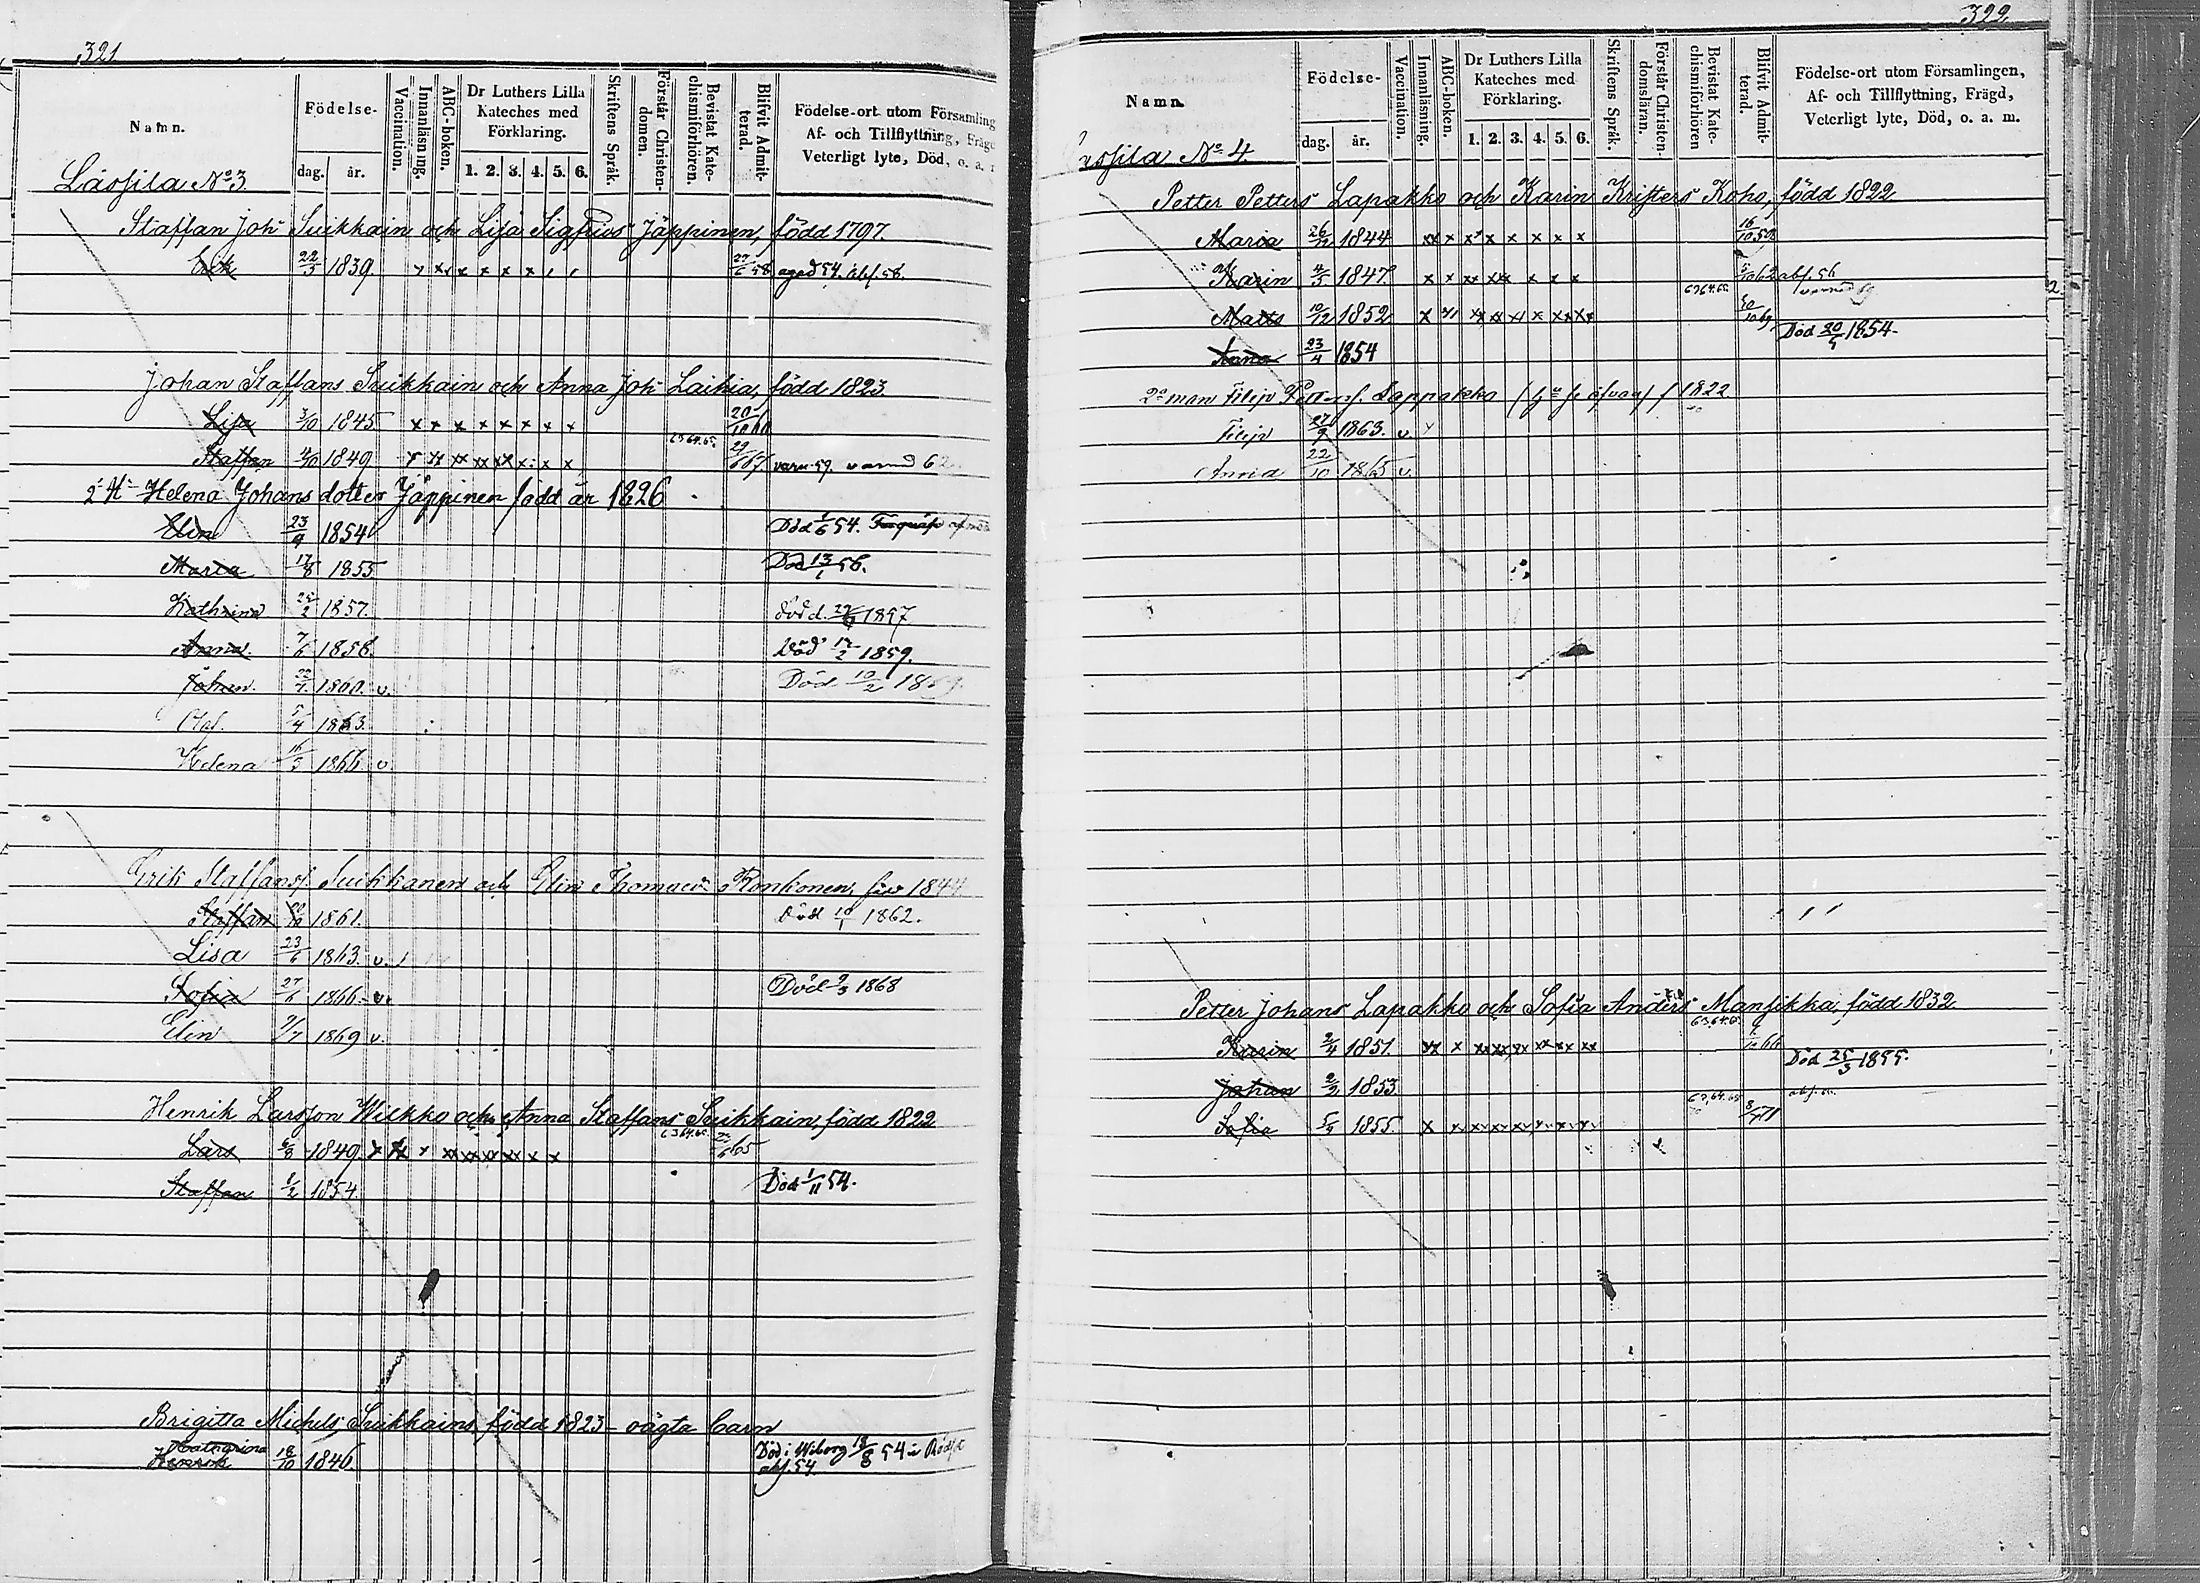 321
Namn.
Födelse-
dag. år.
Vaccination.
Innanläsning.
ABC-boken.
Dr Luthers Lilla Kateches med Förklaring.
1. 2. 3. 4. 5. 6.
Skriftens Språk.
Förstår Christendomen.
Bevistat Katechismiförhören.
Blifvit Admitterad.
Födelse-ort utom Församling
Af- och Tillflyttning, Fräge
Veterligt lyte, Död, o. a.
Lässila No 3.
Staffan Joh Suikkain och Lisa Sigfrids Jäppinen, född 1797.
Erik 22/5 1839 x x x x x x x 27/6 58 58.
Johan Staffans Suikkain och Anna Joh Laihia, född 1823.
Lisa 3/10 1845 x x x x x x x x 20/10 60
Staffan 4/10 1849 x x x x x x x x 63 64. 65. 67 62
2 H Helena Johans dotter Jäppinen född år 1826
Elin 23/4 1854 Död 1/6 54.
Maria 17/8 1855 Död 13/1 56.
Kathrina 2 1857. död d. 1857
Anna 7/6 1858. Död 17/2 1859.
Johan 1860. v. Död 10/2 18
Olof. 5/4 1863.
Helena 16/3 1866 v.
Erik Staffanss. Suikkanen och Elin Thomasd. Ronkonen, född 1844
Staffan 1861. Död 10/1 1862.
Lisa 23/6 1863. v.
Sofia 27/6 1866 v. Död 9/3 1868
Elin 9/7 1869 v.
Henrik Larsson Wilkko och Anna Staffans Suikkain, född 1822
Lars 8 1849 x x x xx xx xx xx x x 63 64. 65. 65
Staffan 1/2 1854. Död 1/11 54.
Brigitta Michels Suikkain, född 1823 oägta barn
Catharina
Henrik 18/10 1846. Död i Wiborg 18/8 54
abs. 54.
322.
Namn.
Födelse-
dag. år.
Vaccination.
Innanläsning.
ABC-boken.
Dr Luthers Lilla Kateches med Förklaring.
1. 2. 3. 4. 5. 6.
Skriftens Språk.
Förstår Christendomsläran.
Bevistat Katechismiförhören
Blifvit Admitterad.
Födelse-ort utom Församlingen,
Af- och Tillflyttning, Frägd,
Veterligt lyte, Död, o. a. m.
Lässila No 4.
Petter Petters Lapakko och Karin Kristers Koho, född 1822
Maria 26/12 1844 xx x x x x x x x 16/10 59
Karin 4/5 1847. x x xx xx x x x 62 abs. 56
Matts 10/12 1852 x xx xx x x xx xx 10 69
Anna 23/4 1854 Död 20/5 1854.
2 man Filip Petterss. Lappakko f 1822
Filip 27/9 1863. v.
Anna 22/10 1865 v.
Petter Johans Lapakko och Sofia Anders Mansikka, född 1832
Karin 2/4 1851. xx x xx xx xx xx xx xx 63, 64. 65. 66
Johan 2/2 1853 Död 25/3 1855.
Sofia 1855. x x x x x x x x 63, 64. 65 71